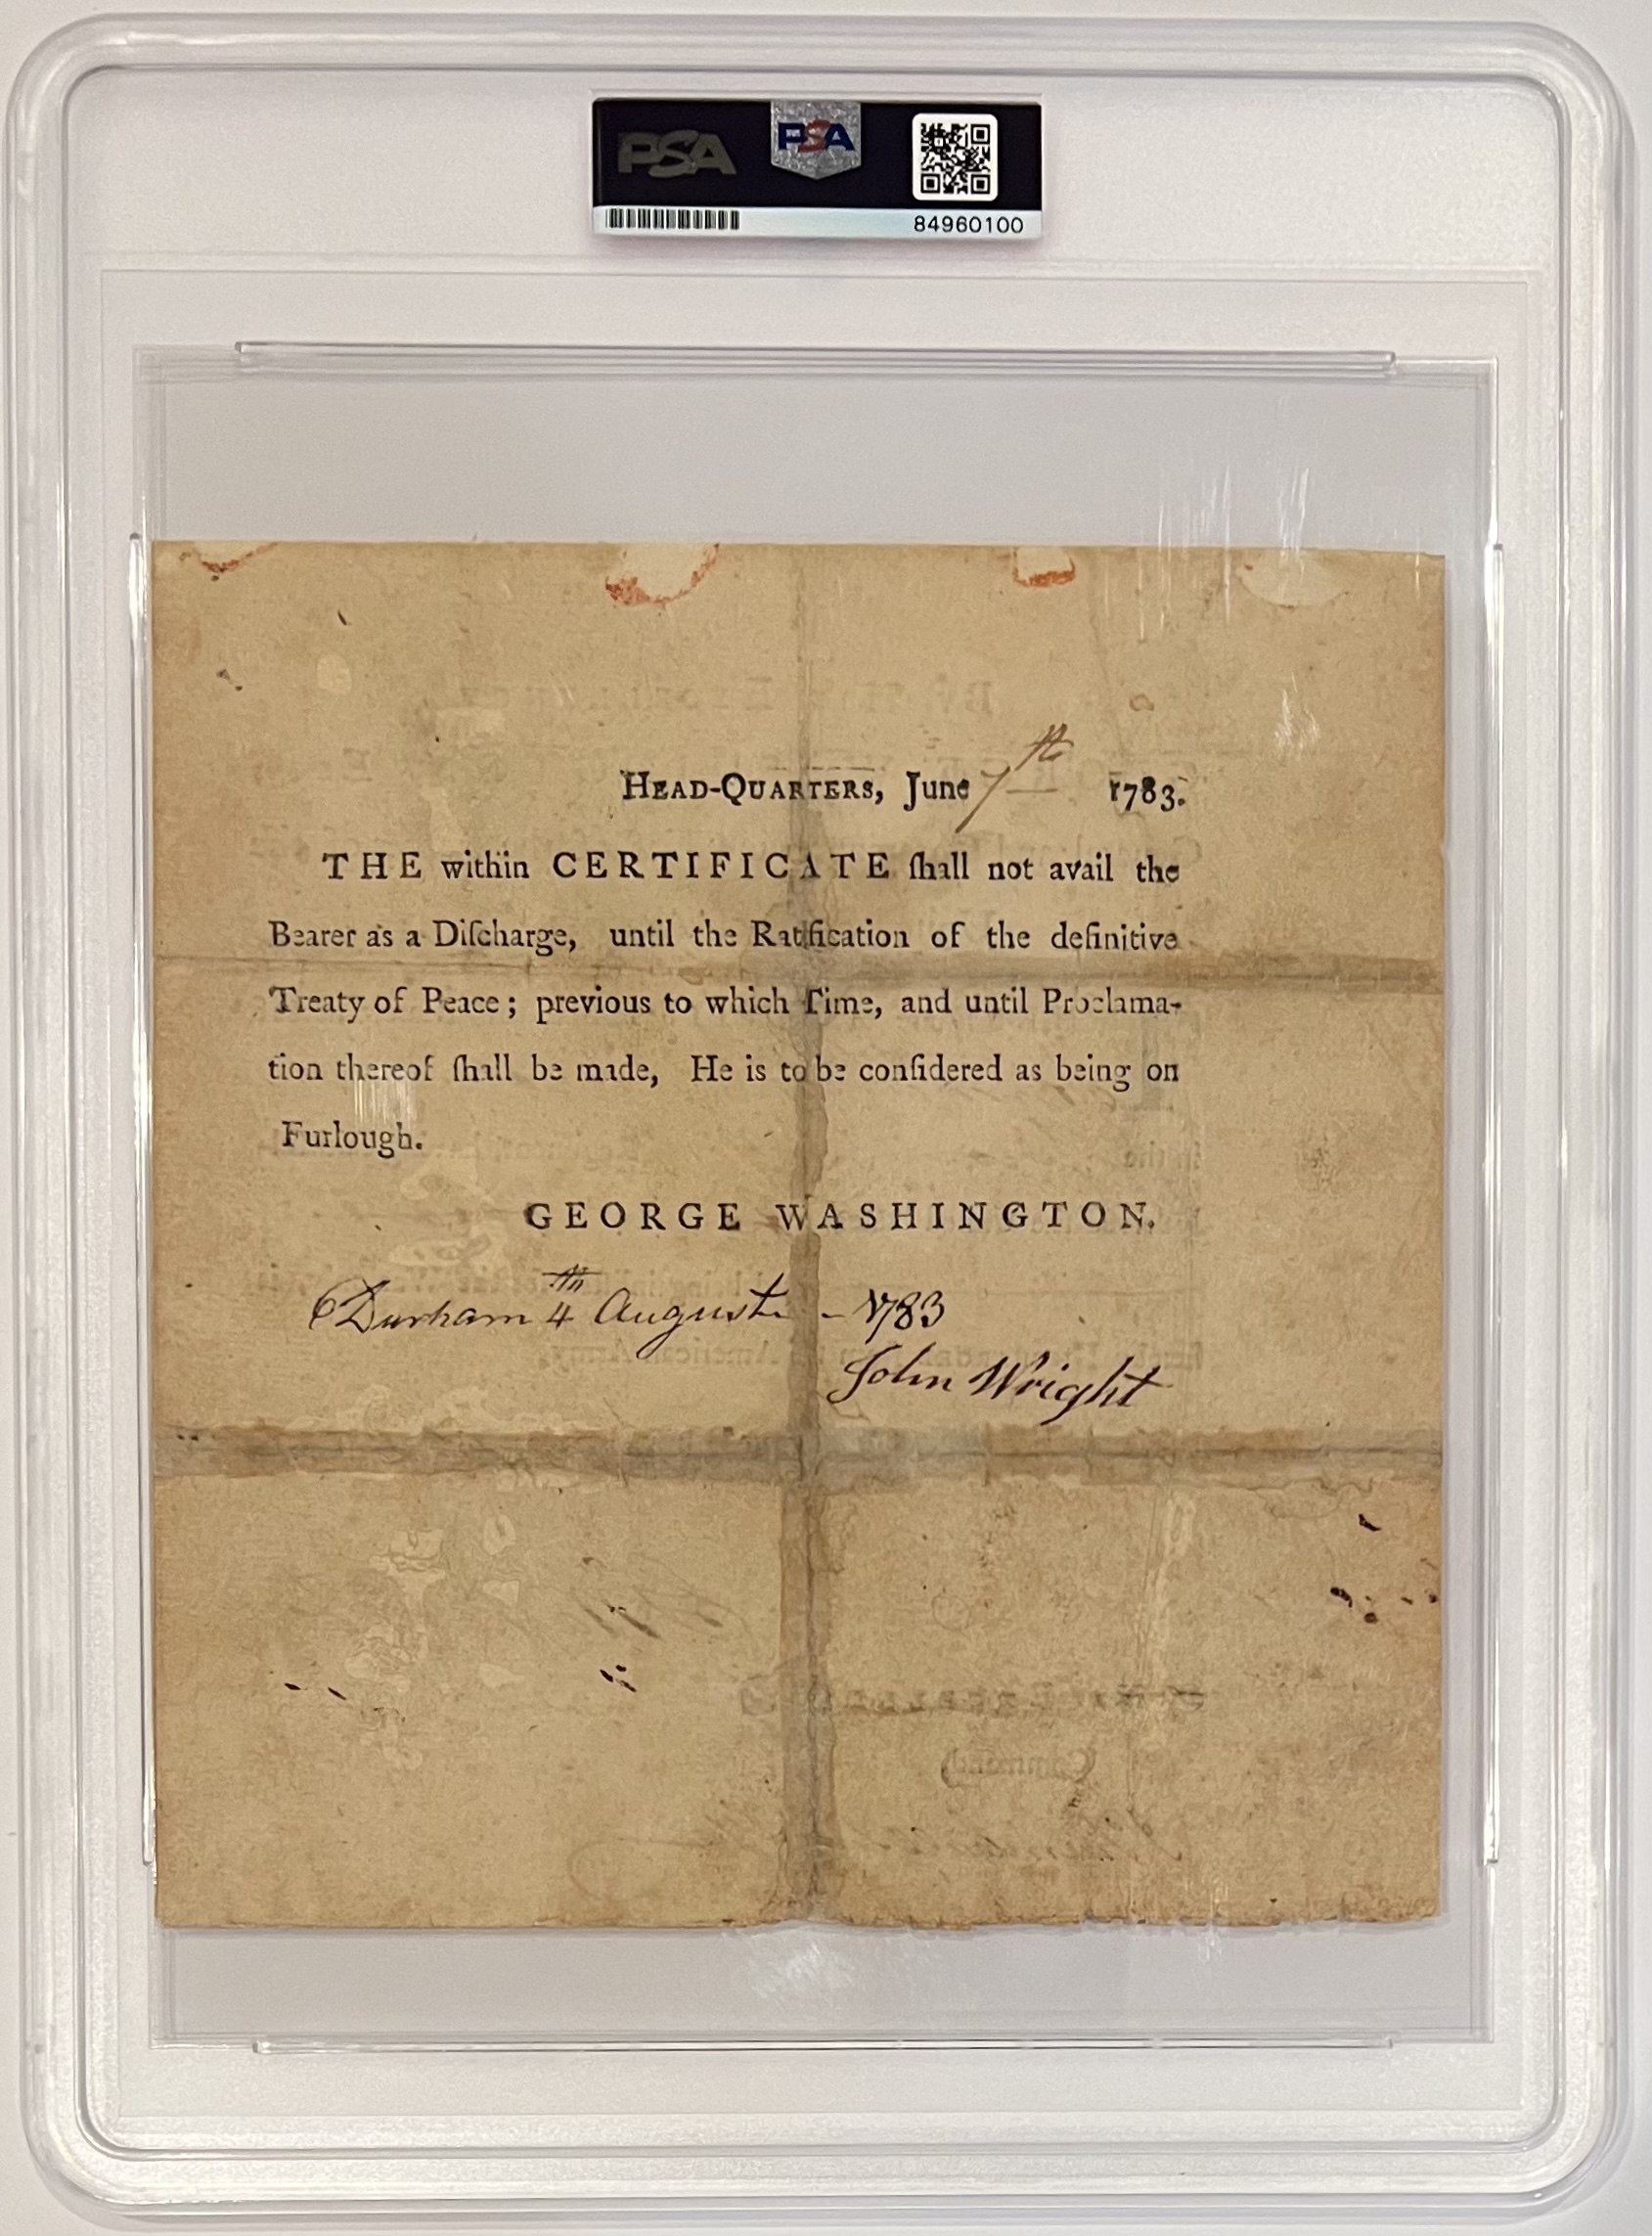 PSA
PSA
84960100
HEAD-QUARTERS, June 7th 1783.
THE within CERTIFICATE ſhall not avail the
Bearer as a Diſcharge, until the Ratification of the definitive
Treaty of Peace; previous to which Time, and until Proclama-
tion thereof ſhall be made, He is to be conſidered as being on
Furlough.
GEORGE WASHINGTON.
Durham 4th August - 1783
John Wright